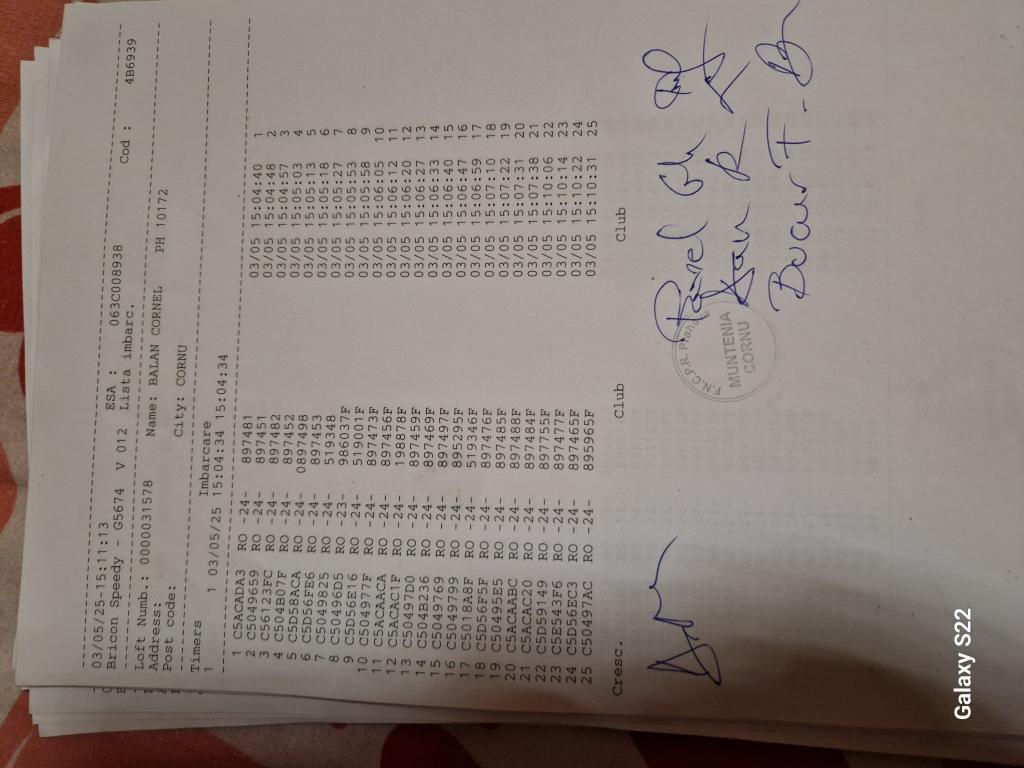 03/05/25-15:11:13
Bricon Speedy - G5674 V 012 ESA : 063C008938
Lista imbarc. Cod : 4B6939
Loft Numb.: 0000031578 Name: BALAN CORNEL PH 10172
Address:
Post code: City: CORNU
Timers Imbarcare
1 1 03/05/25 15:04:34 15:04:34
1 C5ACADA3 RO -24- 897481 03/05 15:04:40 1
2 C5049659 RO -24- 897451 03/05 15:04:48 2
3 C56123FC RO -24- 897482 03/05 15:04:57 3
4 C504B07F RO -24- 897452 03/05 15:05:03 4
5 C5D58ACA RO -24- 0897498 03/05 15:05:13 5
6 C5D56FE6 RO -24- 897453 03/05 15:05:18 6
7 C5049825 RO -24- 519348 03/05 15:05:27 7
8 C50496D5 RO -23- 986037F 03/05 15:05:53 8
9 C5D56E16 RO -24- 519001F 03/05 15:05:58 9
10 C504977F RO -24- 897473F 03/05 15:06:05 10
11 C5ACAACA RO -24- 897456F 03/05 15:06:12 11
12 C5ACAC1F RO -24- 198878F 03/05 15:06:20 12
13 C50497D0 RO -24- 897459F 03/05 15:06:27 13
14 C504B236 RO -24- 897469F 03/05 15:06:33 14
15 C5049769 RO -24- 897497F 03/05 15:06:40 15
16 C5049799 RO -24- 895295F 03/05 15:06:47 16
17 C5018A8F RO -24- 519346F 03/05 15:06:59 17
18 C5D56F5F RO -24- 897476F 03/05 15:07:10 18
19 C50495E5 RO -24- 897485F 03/05 15:07:22 19
20 C5ACAABC RO -24- 897488F 03/05 15:07:31 20
21 C5ACAC20 RO -24- 897484F 03/05 15:07:38 21
22 C5D59149 RO -24- 897755F 03/05 15:10:06 22
23 C5E543F6 RO -24- 897477F 03/05 15:10:14 23
24 C5D56EC3 RO -24- 897465F 03/05 15:10:22 24
25 C50497AC RO -24- 895965F 03/05 15:10:31 25
Cresc. Club Club
Pavel Gh
F.N.C.P.R. Prahova
MUNTENIA
CORNU
Galaxy S22